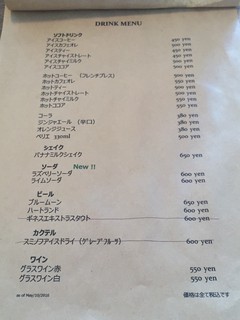 DRINK MENU
ソフトドリンク
アイスコーヒー 450 yen
アイスカフェオレ 500 yen
アイスティー 450 yen
アイスチャイストレート 500 yen
アイスチャイミルク 550 yen
アイスココア 550 yen
ホットコーヒー (フレンチプレス) 500 yen
ホットカフェオレ 550 yen
ホットティー 500 yen
ホットチャイストレート 500 yen
ホットチャイミルク 550 yen
ホットココア 550 yen
コーラ 380 yen
ジンジャエール (辛口) 380 yen
オレンジジュース 380 yen
ペリエ 330ml 500 yen
シェイク
バナナミルクシェイク 650 yen
ソーダ New !!
ラズベリーソーダ 600 yen
ライムソーダ 600 yen
ビール
ブルームーン 650 yen
ハートランド 600 yen
ギネスエキストラスタウト 600 yen
カクテル
スミノフアイスドライ (グレープフルーツ) 600 yen
ワイン
グラスワイン赤 550 yen
グラスワイン白 550 yen
as of May/20/2016 価格は全て税込です